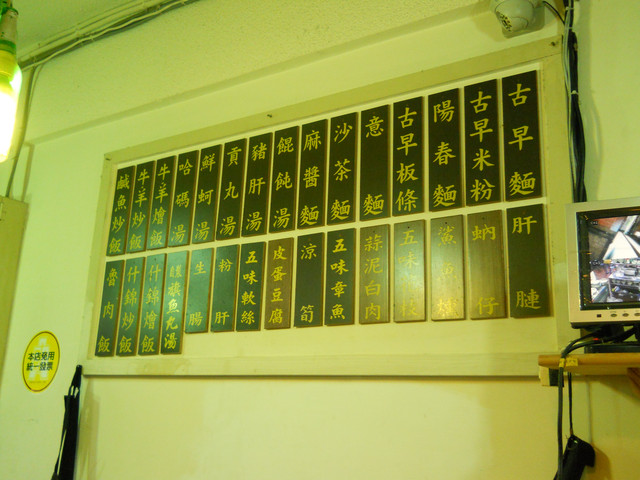 古早麵
古早米粉
陽春麵
古早板條
意麵
沙茶麵
麻醬麵
餛飩湯
豬肝湯
貢丸湯
鮮蚵湯
哈碼湯
牛羊燴飯
牛羊炒飯
鹹魚炒飯
肝腱
蚋仔
鯊魚煙
五味
蒜泥白肉
五味章魚
涼筍
皮蛋豆腐
五味軟絲
粉肝
生腸
魚丸湯
什錦燴飯
什錦炒飯
魯肉飯
本店免用
統一發票